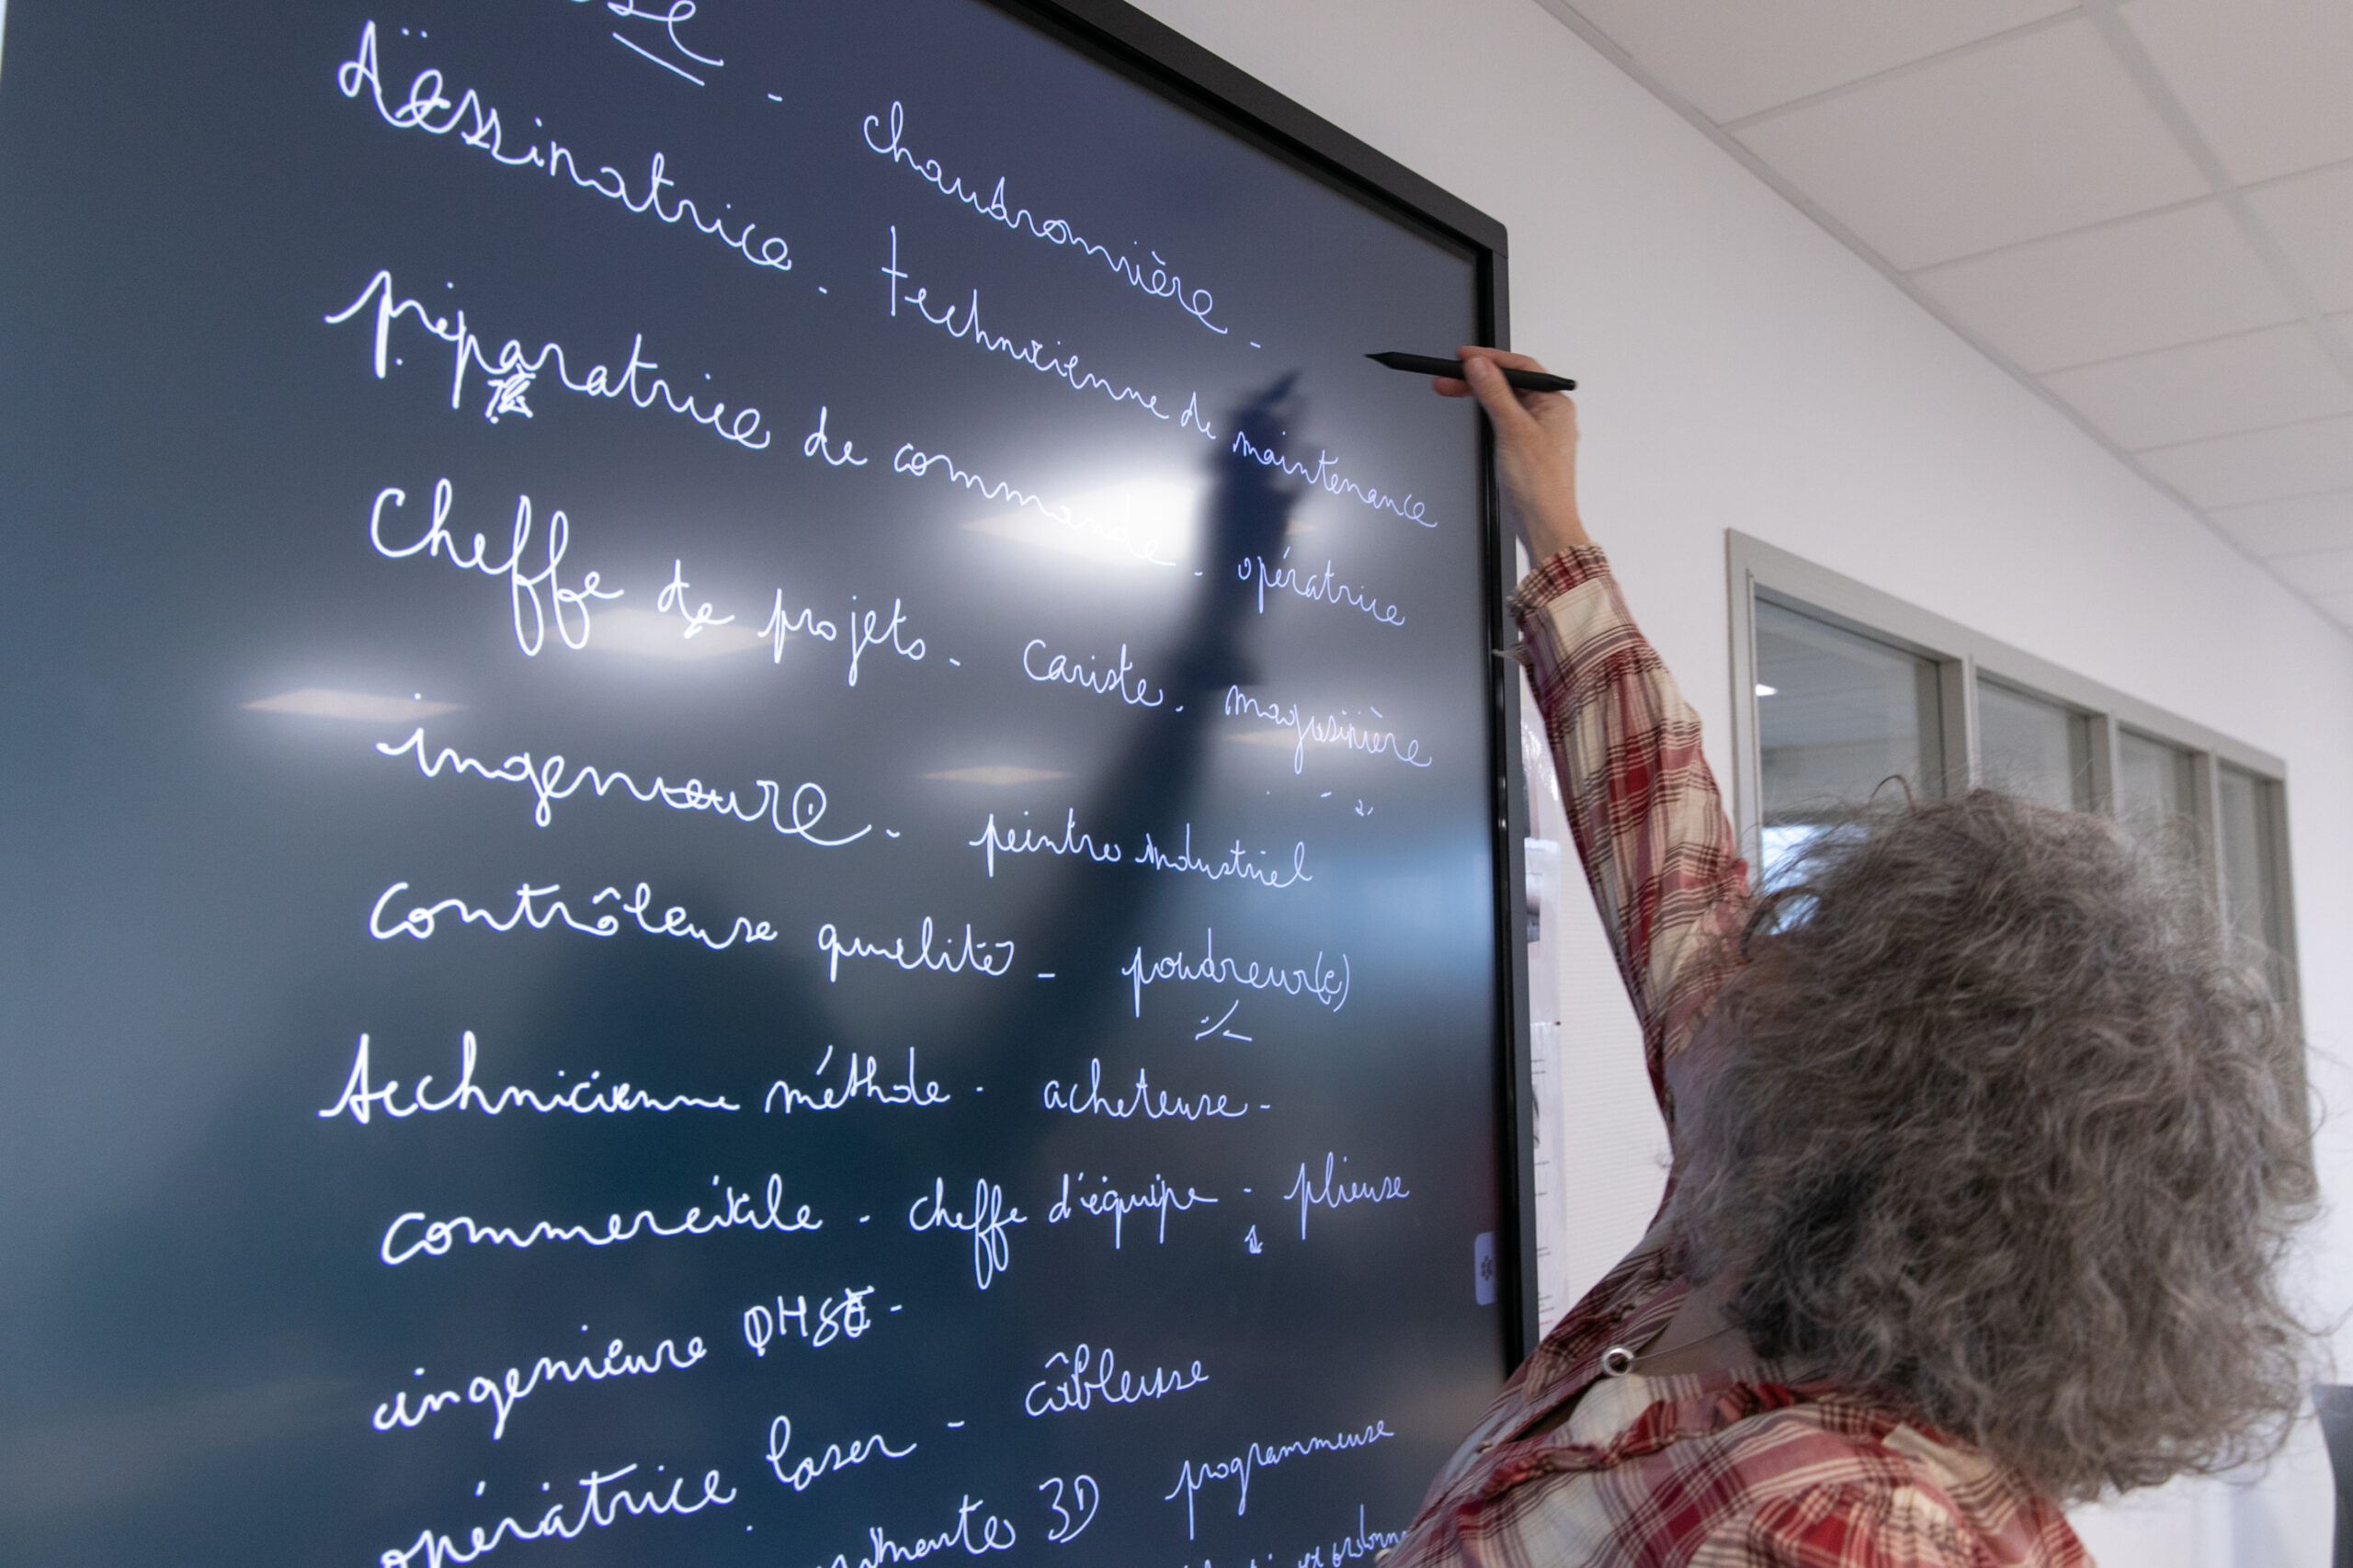 dessinatrice - chaudronnière -
préparatrice de commande - technicienne de maintenance
cheffe de projets - cariste - opératrice
ingenieure - peintre industriel magasinière
contrôleuse qualité - poudreur(e)
technicienne méthode - acheteuse -
commerciale - cheffe d'équipe - plieuse
ingenieure QHSE -
opératrice laser - câbleuse
3D programmeuse